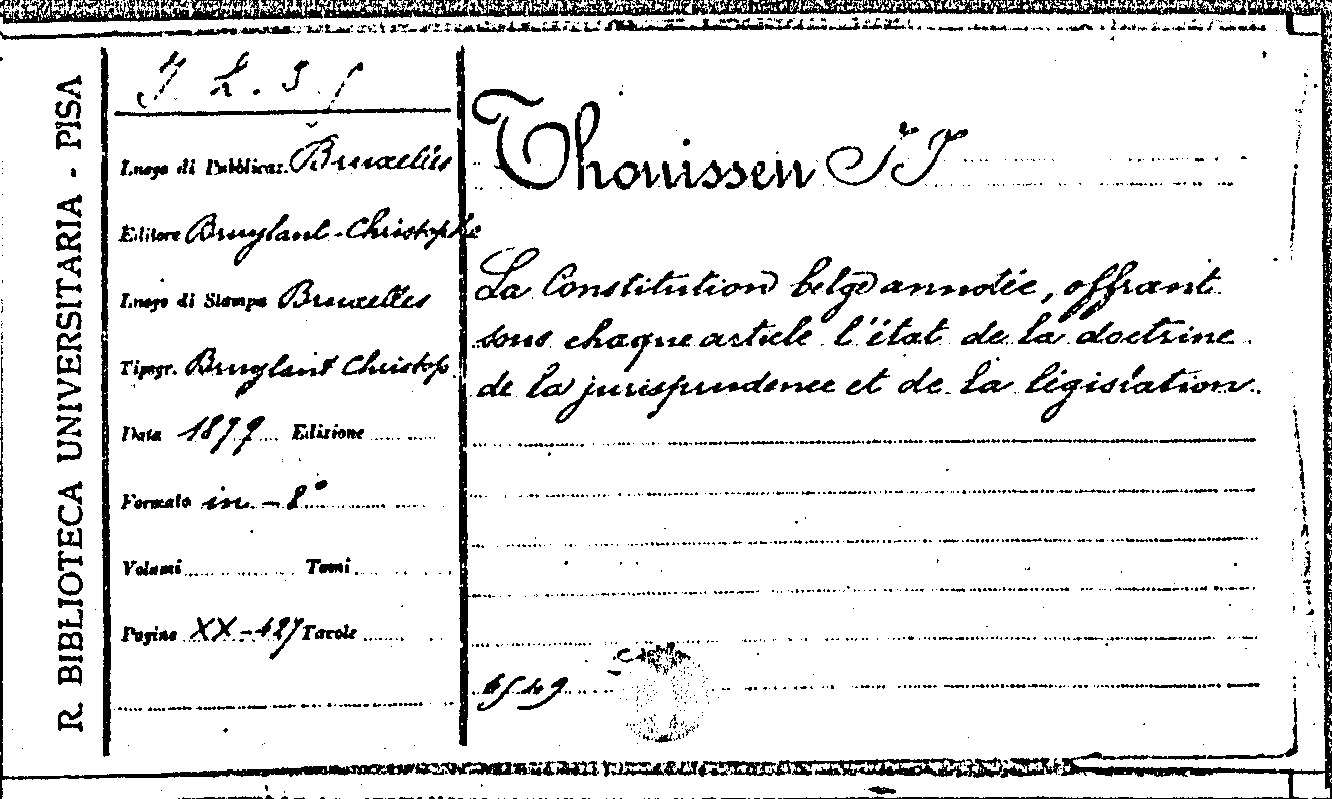 R. BIBLIOTECA UNIVERSITARIA - PISA
Luogo di Pubblicaz. Bruxelles
Editore Bruylant-Christophe
Luogo di Stampa Bruxelles
Tipogr. Bruylant Christop
Data 1879 Edizione
Formato in-8°
Volumi Tomi
Pagine XX-427 Tavole
Thonissen JJ
La Constitution belge annotée, offrant
sous chaque article l'état de la doctrine
de la jurisprudence et de la législation